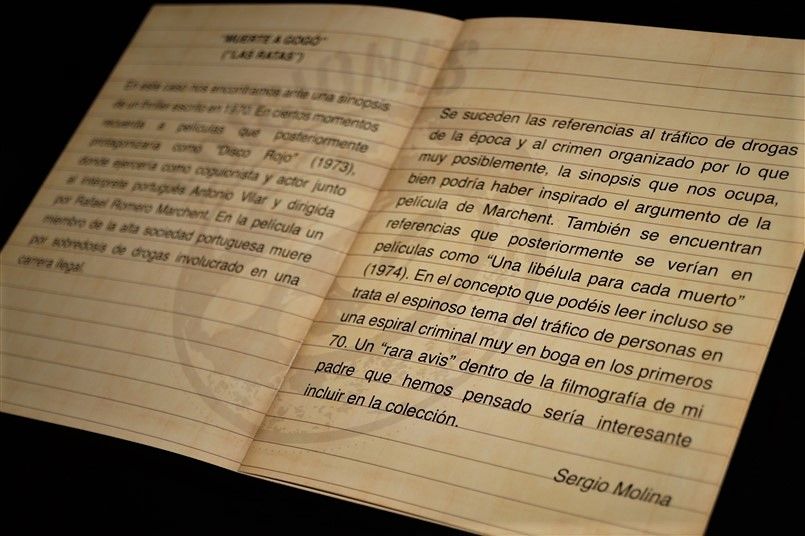 "MUERTE A GOGÓ"
("LAS RATAS")
En este caso nos encontramos ante una sinopsis
de un thriller escrito en 1970. En ciertos momentos
recuerda a películas que posteriormente
protagonizaría como "Disco Rojo" (1973),
donde ejercería como coguionista y actor junto
al intérprete portugués Antonio Vilar y dirigida
por Rafael Romero Marchent. En la película un
miembro de la alta sociedad portuguesa muere
por sobredosis de drogas involucrado en una
carrera ilegal.
Se suceden las referencias al tráfico de drogas
de la época y al crimen organizado por lo que
muy posiblemente, la sinopsis que nos ocupa,
bien podría haber inspirado el argumento de la
película de Marchent. También se encuentran
referencias que posteriormente se verían en
películas como "Una libélula para cada muerto"
(1974). En el concepto que podéis leer incluso se
trata el espinoso tema del tráfico de personas en
una espiral criminal muy en boga en los primeros
70. Un "rara avis" dentro de la filmografía de mi
padre que hemos pensado sería interesante
incluir en la colección.
Sergio Molina